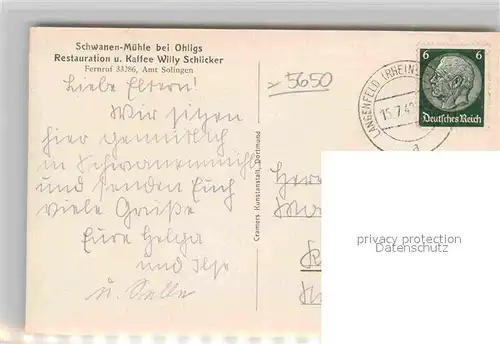 Schwanen-Mühle bei Ohligs
Restauration u. Kaffee Willy Schlicker
Fernruf 33286, Amt Solingen
5650
Liebe Eltern!
Wir sitzen
hier gemütlich
in Schwanenmühle
und senden Euch
viele Grüße
Eure Helga
und Ilse
u.
Cramers Kunstanstalt, Dortmund
LANGENFELD (RHEIN
15.7.4
a
6 6
Deutsches Reich
privacy protection
Datenschutz